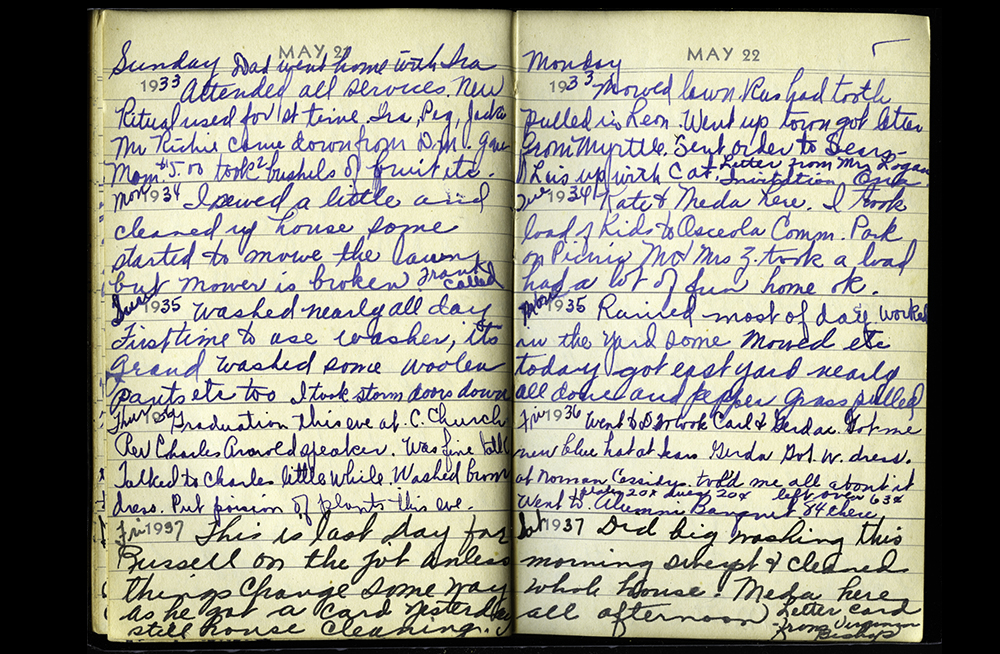 MAY 21
Sunday Dad went home with Ira
1933 Attended all services, New
Ritual used for 1st time. Ira, Peg, Jackie
Mr Richie came down from D.M. gave
Mom $5.00 took 2 bushels of fruit etc.
Mon 1934 I sewed a little and
cleaned up house some
started to mowe the lawn
but mower is broken Frank called
Tues 1935 Washed nearly all day
First time to use washer, its
Grand washed some woolen
pants etc too I took storm doors down
Thur 1936 Graduation this eve at C. Church
Rev Charles speaker. Was fine talk
Talked to Charles little while. Washed brown
dress. Put poision on plants this eve.
Fri 1937 This is last day for
Russell on the job unless
things change some way
as he got a card yesterday
still house cleaning.
MAY 22
Monday
1933 Mowed lawn Rus had tooth
pulled in Leon. Went up town got letter
from Myrtle. Sent order to Sears-
up with Cat. Letter from Mrs Logan
Invitation
Tue 1934 Kate & Meda here. I took
load of Kids to Osceola Comm. Park
on Picnic Mr Mrs Z. took a load
had a lot of fun home ok.
1935 Rained most of day, worked
in the yard some Mowed etc
today got east yard nearly
all done and pepper grass pulled
Fri 1936 Went to D.M. took Carl & Gerda. Got me
new blue hat at Sears Gerda Got W. dress.
at Norman Cassidys. told me all about it
20¢ 20¢ left over 63¢
Went to Alumni Banquet 84 there
Sat 1937 Did big washing this
morning swept & cleaned
whole house. Meda here
all afternoon Letter Card
from Virginia
Bishop